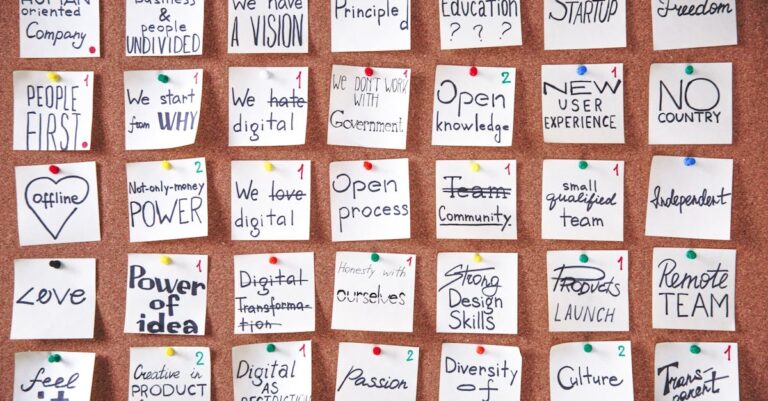 HUMAN
oriented
Company
Business
& people
UNDIVIDED
We have
A VISION
Principled
Education
? ? ?
STARTUP
Freedom
1
PEOPLE
FIRST
1
We start
from WHY
1
We hate
digital
1
We DON'T WORK
WITH
Government
2
Open
knowledge
1
NEW
USER
EXPERIENCE
NO
COUNTRY
offline
2
Not-only-money
POWER
1
We love
digital
1
Open
process
1
Team
Community
1
small
qualified
team
Independent
Love
1
Power
of
idea
1
Digital
Transforma-
tion
1
Honesty with
ourselves
Strong
Design
Skills
1
Products
LAUNCH
Remote
TEAM
feel
it
2
Creative in
PRODUCT
1
Digital
AS
RESTRICTION
2
Passion
Diversity
of
2
Culture
1
Trans-
parent